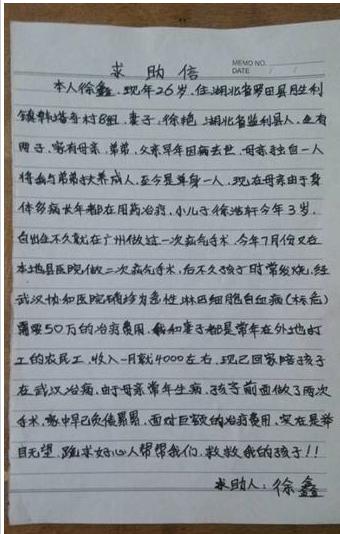 求助信
MEMO NO.
DATE / /
本人徐鑫,现年26岁,住湖北省罗田县胜利
镇 村8组,妻子:徐艳,湖北省监利县人,生有
两子,家有母亲、弟弟,父亲早年因病去世,母亲独自一人
将我与弟弟抚养成人,至今是单身一人,现在母亲由于身
体多病长年都在用药治疗,小儿子徐浩轩今年3岁,
自出生不久就在广州做过一次疝气手术,今年7月份又在
本地县医院做二次疝气手术,后不久孩子时常发烧,经
武汉协和医院确诊为急性淋巴细胞白血病(标危)
需要50万的治疗费用,我和妻子都是常年在外地打
工的农民工,收入一月就4000左右,现已回家陪孩子
在武汉治病,由于母亲常年生病,孩子前面做了两次
手术,家中早已负债累累,面对巨额的治疗费用,实在是举
目无望,跪求好心人帮帮我们,救救我的孩子!!
求助人:徐鑫